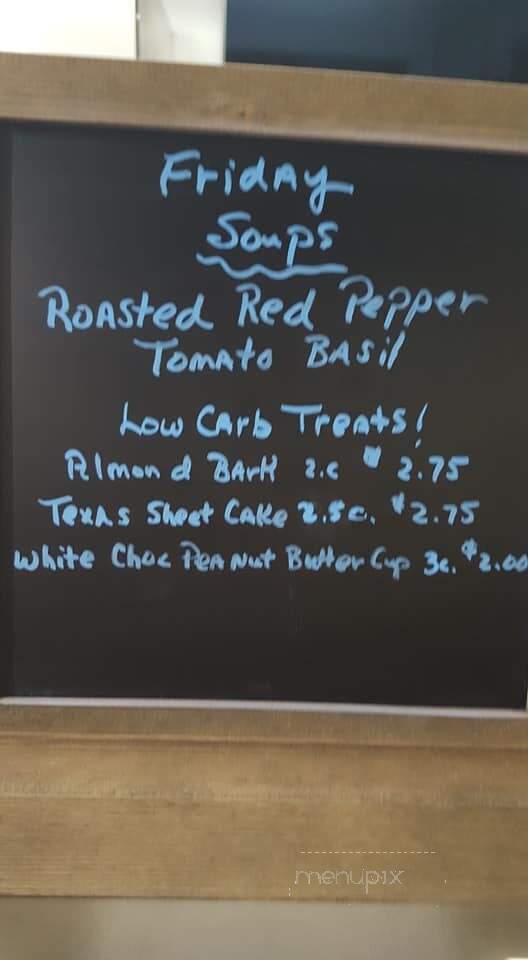 Friday
Soups
Roasted Red Pepper
Tomato Basil
Low Carb Treats!
Almond Bark 2.c $2.75
Texas Sheet Cake 2.5c. $2.75
White Choc Peanut Butter Cup 3c. $2.00
menupix